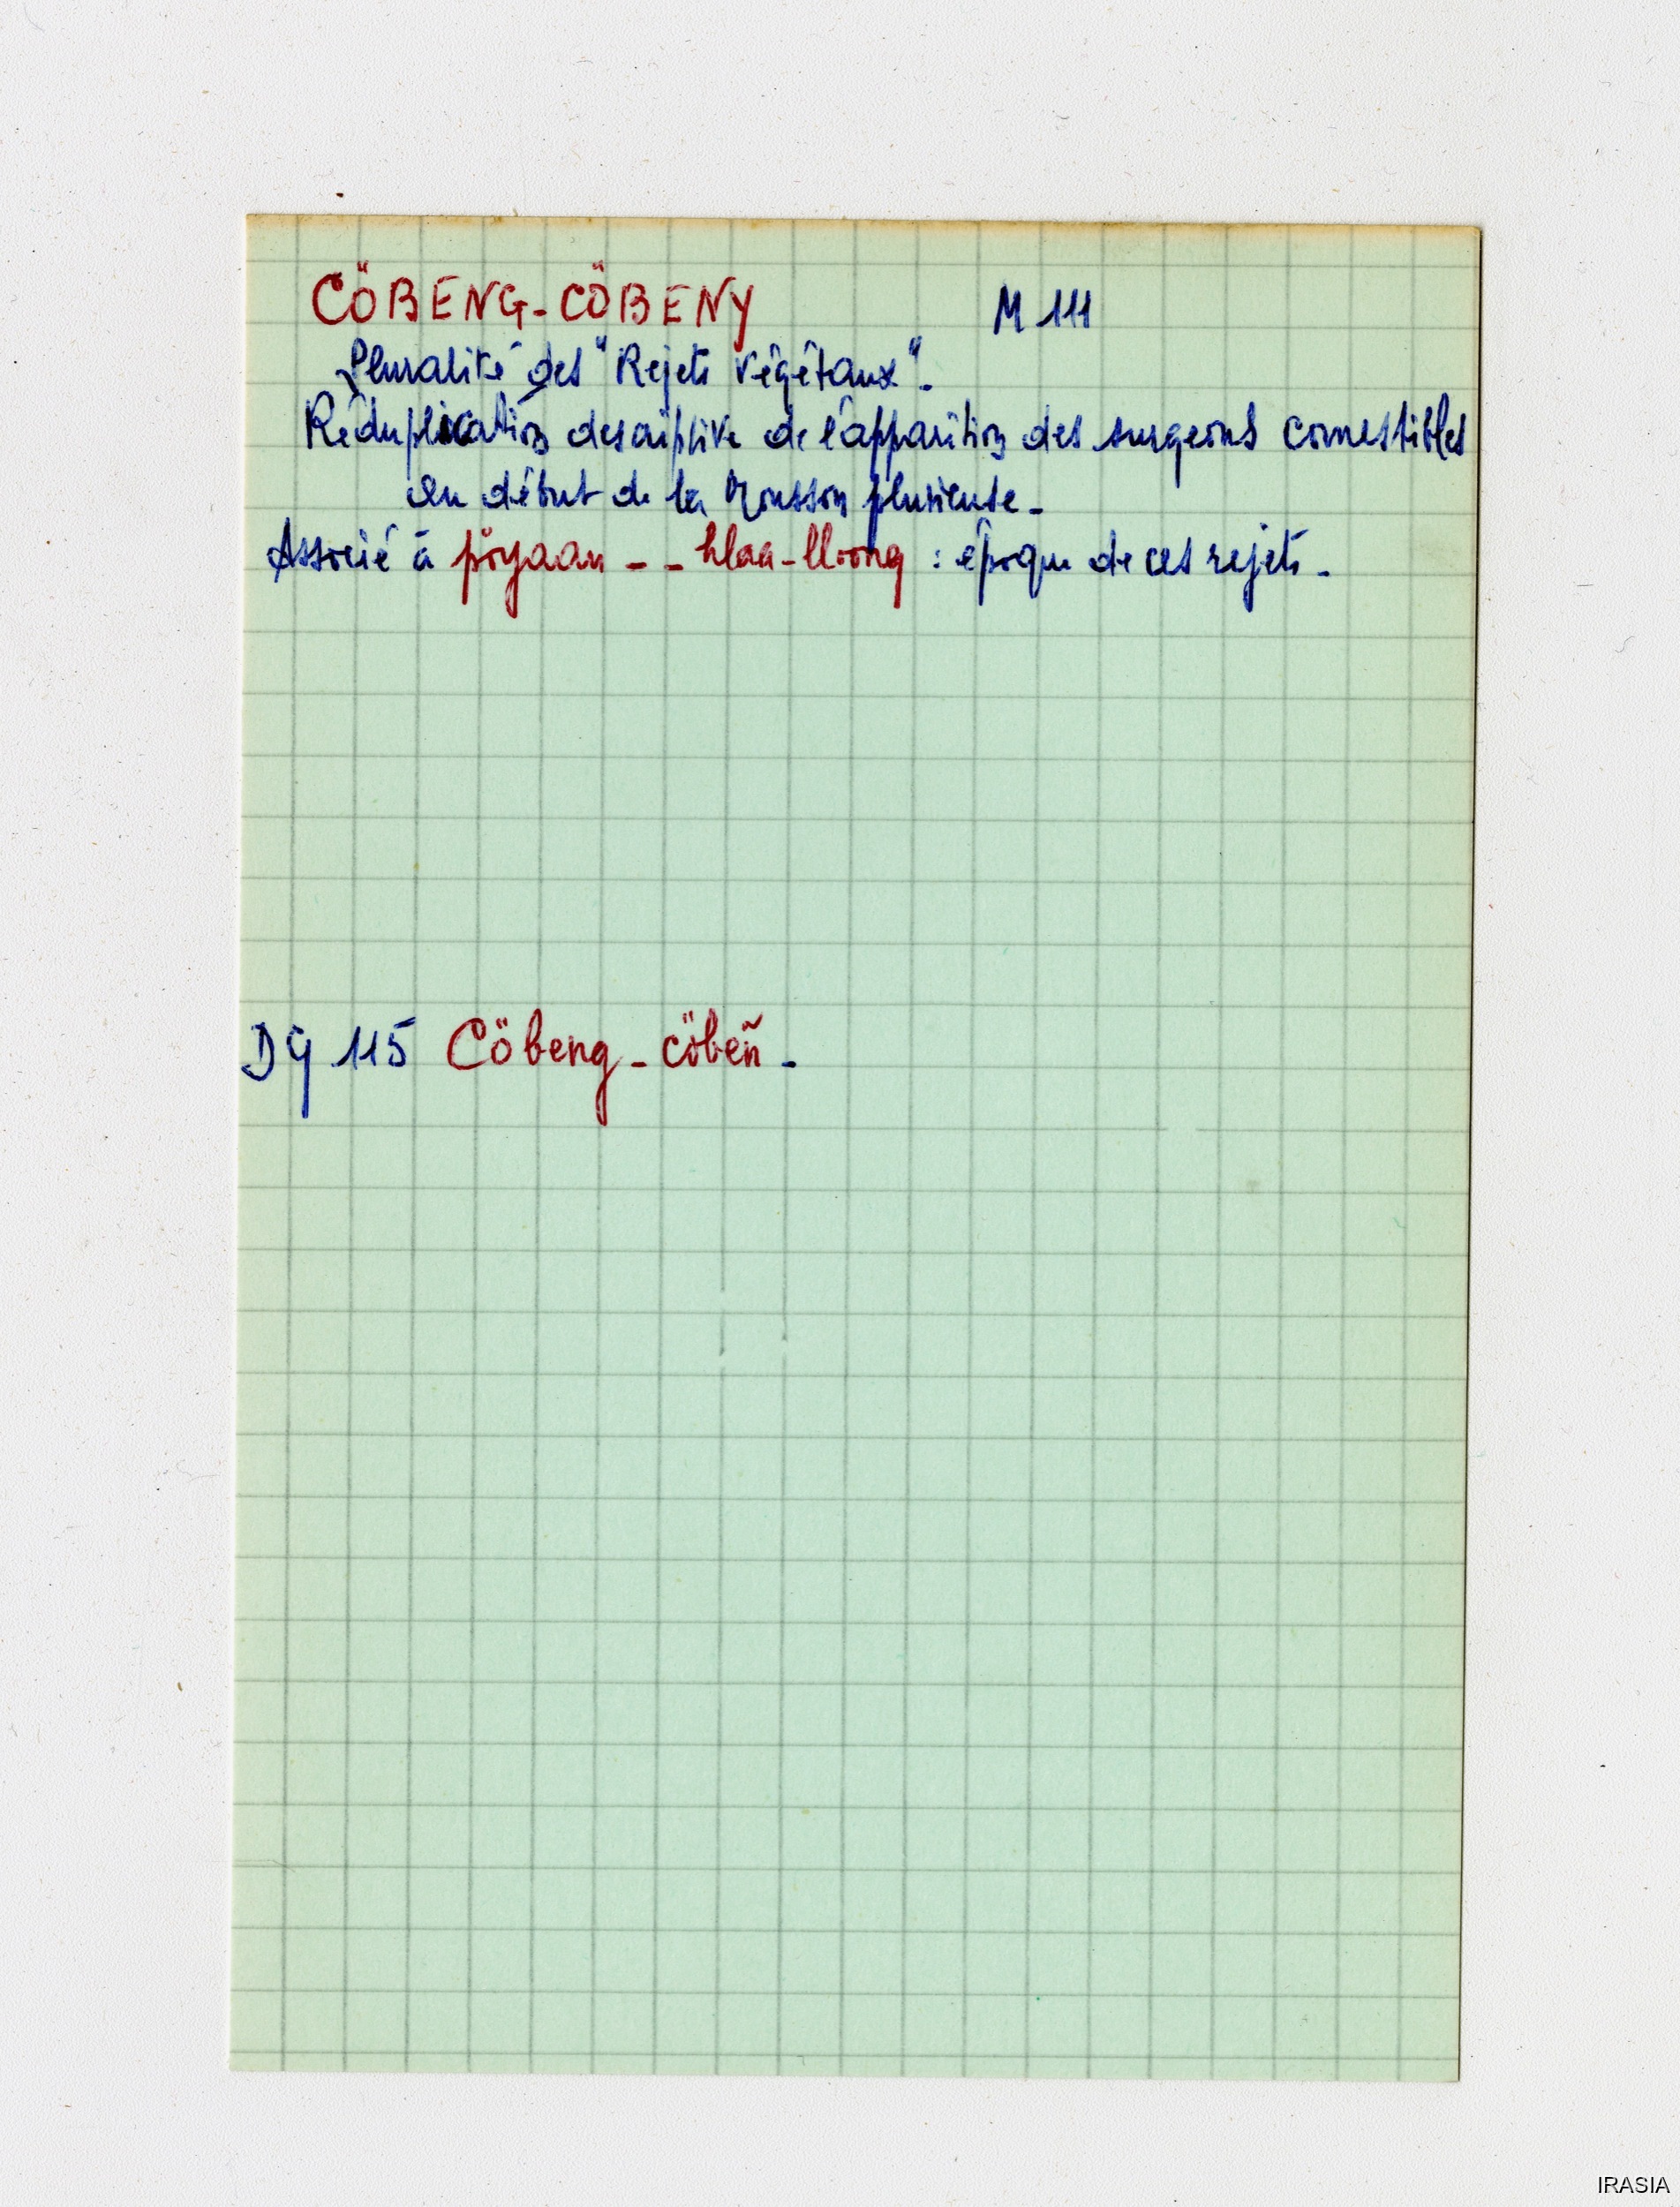 CÖBENG-CÖBENY M 111
Pluralité des "Rejets végétaux".
Réduplication descriptive de l'apparition des surgeons comestibles
au début de la Mousson pluvieuse.
Associé à pöyaan -- hlaa-lloong : époque de ces rejets.
DG 115 Cöbeng-cöbeñ.
IRASIA